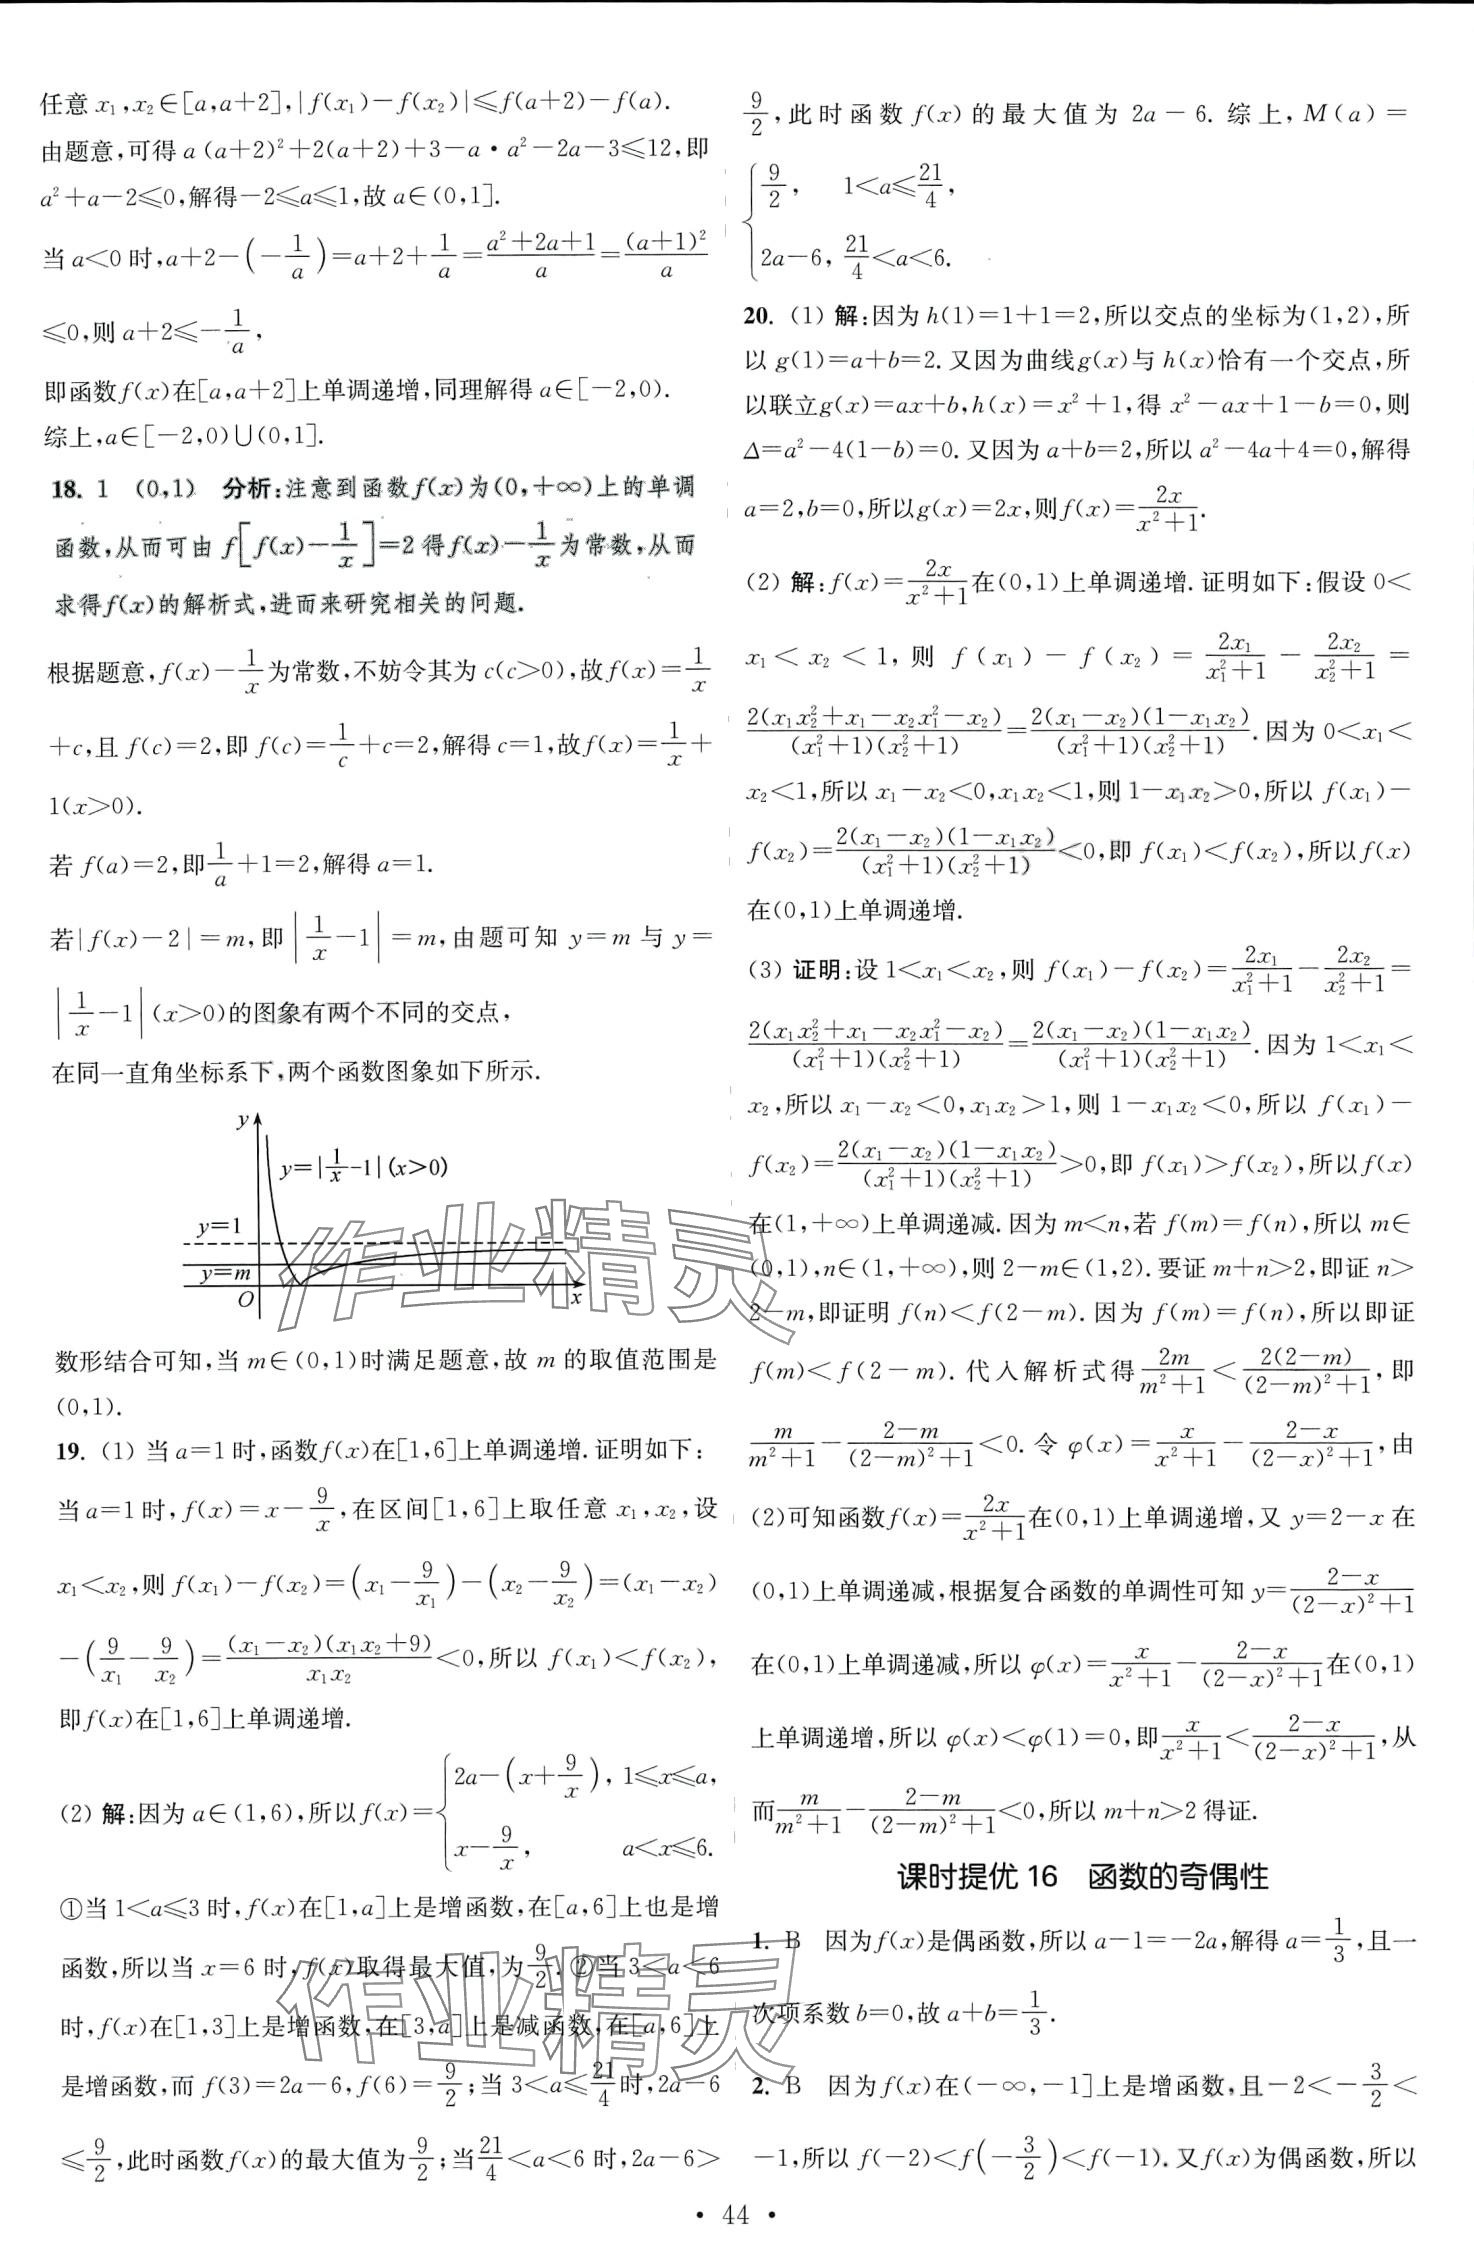 任意 x₁,x₂∈[a,a+2],|f(x₁)−f(x₂)|≤f(a+2)−f(a).
由题意,可得 a(a+2)²+2(a+2)+3−a·a²−2a−3≤12,即
a²+a−2≤0,解得−2≤a≤1,故 a∈(0,1].
当 a<0 时,a+2−(−1/a)=a+2+1/a=(a²+2a+1)/a=(a+1)²/a
≤0,则 a+2≤−1/a,
即函数 f(x)在[a,a+2]上单调递增,同理解得 a∈[−2,0).
综上,a∈[−2,0)∪(0,1].
18. 1 (0,1) 分析:注意到函数 f(x)为(0,+∞)上的单调
函数,从而可由 f[f(x)−1/x]=2 得 f(x)−1/x 为常数,从而
求得 f(x)的解析式,进而来研究相关的问题.
根据题意,f(x)−1/x 为常数,不妨令其为 c(c>0),故 f(x)=1/x
+c,且 f(c)=2,即 f(c)=1/c+c=2,解得 c=1,故 f(x)=1/x+
1(x>0).
若 f(a)=2,即 1/a+1=2,解得 a=1.
若|f(x)−2|=m,即|1/x−1|=m,由题可知 y=m 与 y=
|1/x−1|(x>0)的图象有两个不同的交点,
在同一直角坐标系下,两个函数图象如下所示.
y
y=|1/x−1|(x>0)
y=1
y=m
O
x
数形结合可知,当 m∈(0,1)时满足题意,故 m 的取值范围是
(0,1).
19. (1) 当 a=1 时,函数 f(x)在[1,6]上单调递增.证明如下:
当 a=1 时,f(x)=x−9/x,在区间[1,6]上取任意 x₁,x₂,设
x₁<x₂,则 f(x₁)−f(x₂)=(x₁−9/x₁)−(x₂−9/x₂)=(x₁−x₂)
−(9/x₁−9/x₂)=(x₁−x₂)(x₁x₂+9)/x₁x₂<0,所以 f(x₁)<f(x₂),
即 f(x)在[1,6]上单调递增.
(2) 解:因为 a∈(1,6),所以 f(x)={2a−(x+9/x), 1≤x≤a,
x−9/x, a<x≤6.
①当 1<a≤3 时,f(x)在[1,a]上是增函数,在[a,6]上也是增
函数,所以当 x=6 时,f(x)取得最大值,为 9/2.②当 3<a<6
时,f(x)在[1,3]上是增函数,在[3,a]上是减函数,在[a,6]上
是增函数,而 f(3)=2a−6,f(6)=9/2;当 3<a≤21/4 时,2a−6
≤9/2,此时函数 f(x)的最大值为 9/2;当 21/4<a<6 时,2a−6>
9/2,此时函数 f(x)的最大值为 2a−6.综上,M(a)=
{9/2, 1<a≤21/4,
2a−6, 21/4<a<6.
20. (1) 解:因为 h(1)=1+1=2,所以交点的坐标为(1,2),所
以 g(1)=a+b=2.又因为曲线 g(x)与 h(x)恰有一个交点,所
以联立 g(x)=ax+b,h(x)=x²+1,得 x²−ax+1−b=0,则
Δ=a²−4(1−b)=0.又因为 a+b=2,所以 a²−4a+4=0,解得
a=2,b=0,所以 g(x)=2x,则 f(x)=2x/(x²+1).
(2) 解:f(x)=2x/(x²+1)在(0,1)上单调递增.证明如下:假设 0<
x₁<x₂<1,则 f(x₁)−f(x₂)=2x₁/(x₁²+1)−2x₂/(x₂²+1)=
2(x₁x₂²+x₁−x₂x₁²−x₂)/(x₁²+1)(x₂²+1)=2(x₁−x₂)(1−x₁x₂)/(x₁²+1)(x₂²+1).因为 0<x₁<
x₂<1,所以 x₁−x₂<0,x₁x₂<1,则 1−x₁x₂>0,所以 f(x₁)−
f(x₂)=2(x₁−x₂)(1−x₁x₂)/(x₁²+1)(x₂²+1)<0,即 f(x₁)<f(x₂),所以 f(x)
在(0,1)上单调递增.
(3) 证明:设 1<x₁<x₂,则 f(x₁)−f(x₂)=2x₁/(x₁²+1)−2x₂/(x₂²+1)=
2(x₁x₂²+x₁−x₂x₁²−x₂)/(x₁²+1)(x₂²+1)=2(x₁−x₂)(1−x₁x₂)/(x₁²+1)(x₂²+1).因为 1<x₁<
x₂,所以 x₁−x₂<0,x₁x₂>1,则 1−x₁x₂<0,所以 f(x₁)−
f(x₂)=2(x₁−x₂)(1−x₁x₂)/(x₁²+1)(x₂²+1)>0,即 f(x₁)>f(x₂),所以 f(x)
在(1,+∞)上单调递减.因为 m<n,若 f(m)=f(n),所以 m∈
(0,1),n∈(1,+∞),则 2−m∈(1,2).要证 m+n>2,即证 n>
2−m,即证明 f(n)<f(2−m).因为 f(m)=f(n),所以即证
f(m)<f(2−m).代入解析式得 2m/(m²+1)<2(2−m)/((2−m)²+1),即
m/(m²+1)−(2−m)/((2−m)²+1)<0.令 φ(x)=x/(x²+1)−(2−x)/((2−x)²+1),由
(2)可知函数 f(x)=2x/(x²+1)在(0,1)上单调递增,又 y=2−x 在
(0,1)上单调递减,根据复合函数的单调性可知 y=(2−x)/((2−x)²+1)
在(0,1)上单调递减,所以 φ(x)=x/(x²+1)−(2−x)/((2−x)²+1)在(0,1)
上单调递增,所以 φ(x)<φ(1)=0,即 x/(x²+1)<(2−x)/((2−x)²+1),从
而 m/(m²+1)−(2−m)/((2−m)²+1)<0,所以 m+n>2 得证.
课时提优 16 函数的奇偶性
1. B 因为 f(x)是偶函数,所以 a−1=−2a,解得 a=1/3,且一
次项系数 b=0,故 a+b=1/3.
2. B 因为 f(x)在(−∞,−1]上是增函数,且−2<−3/2<
−1,所以 f(−2)<f(−3/2)<f(−1).又 f(x)为偶函数,所以
· 44 ·
作业精灵
作业精灵